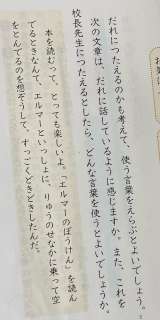 だれにつたえるのかも考えて、使う言葉をえらぶとよいでしょう。
次の文章は、だれに話しているように感じますか。また、これを
校長先生につたえるとしたら、どんな言葉を使うとよいでしょうか。
本を読むって、とっても楽しいよ。「エルマーのぼうけん」を読ん
でるときなんて、エルマーといっしょに、りゅうのせなかに乗って空
をとんでるのを想ぞうして、すっごくどきどきしたんだ。